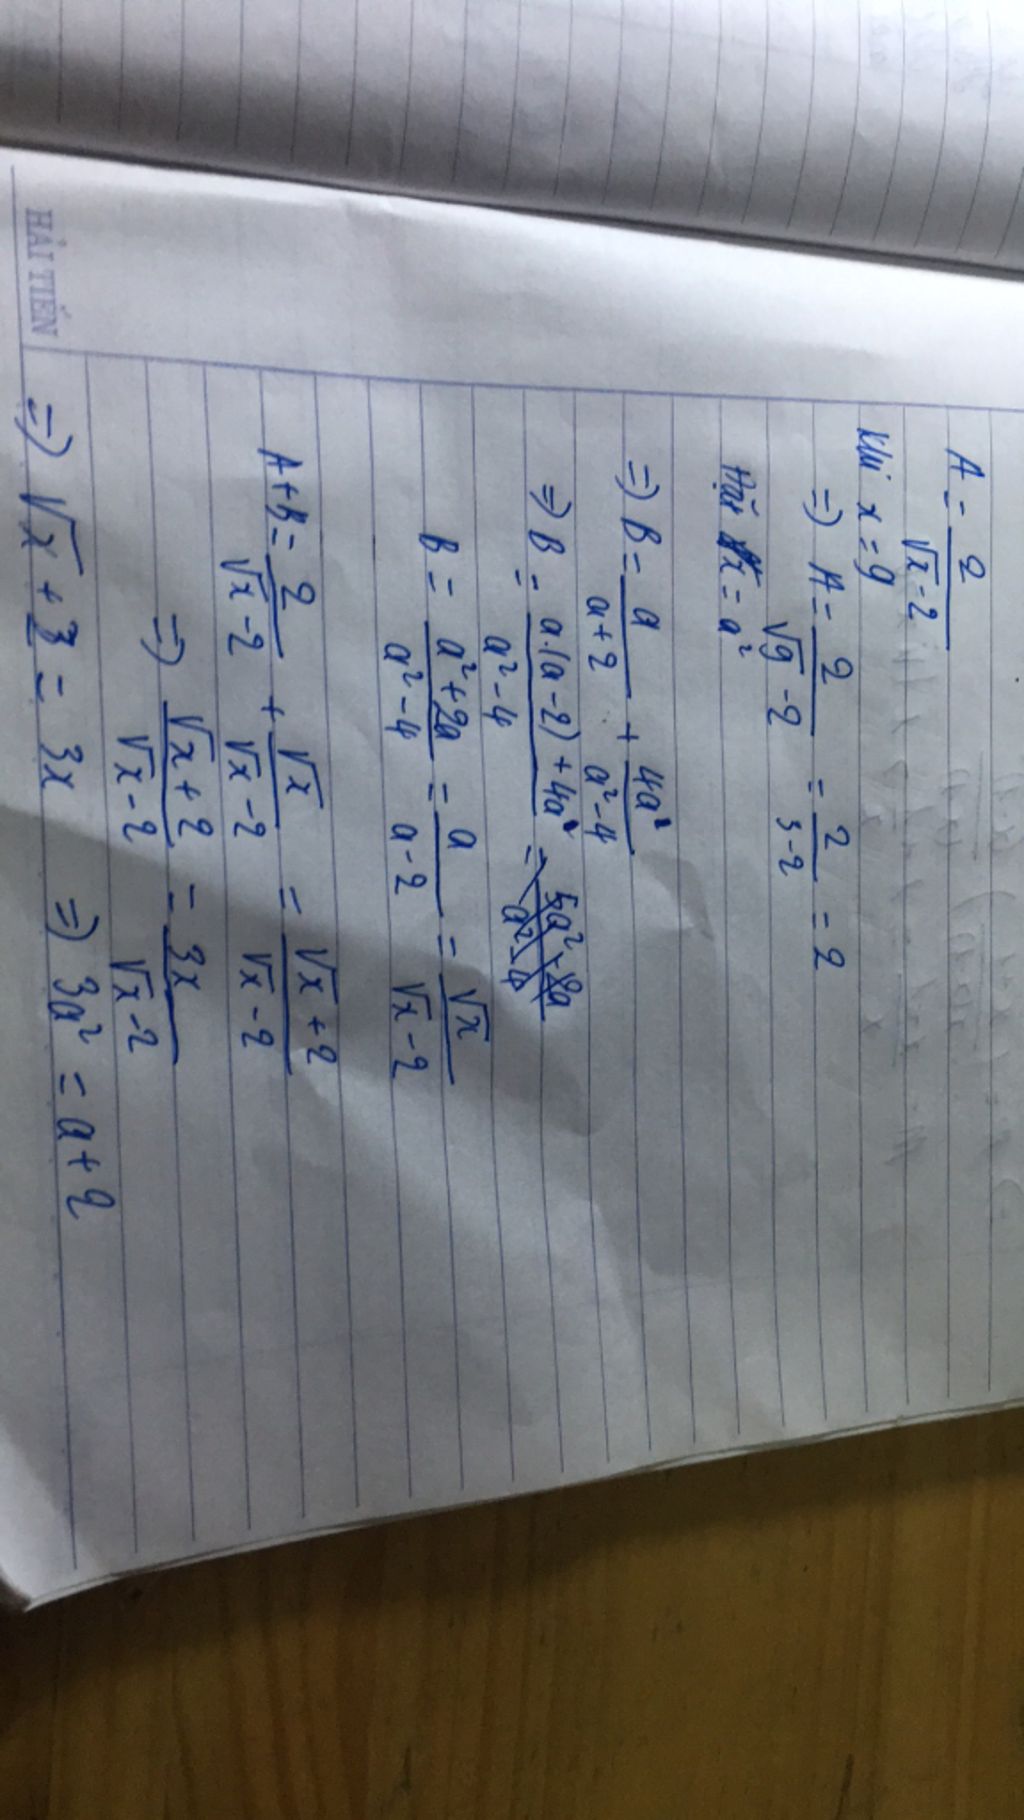 HẢI TIẾN
A = 2/(√x - 2)
Khi x = 9
=> A = 2/(√9 - 2) = 2/(3 - 2) = 2
Đặt x = a²
=> B = a/(a + 2) + 4a/(a² - 4)
=> B = (a.(a - 2) + 4a)/(a² - 4) =
B = (a² + 2a)/(a² - 4) = a/(a - 2) = √x/(√x - 2)
A + B = 2/(√x - 2) + √x/(√x - 2) = (√x + 2)/(√x - 2)
=> (√x + 2)/(√x - 2) = 3x/(√x - 2)
=> √x + 3 = 3x => 3a² = a + 2